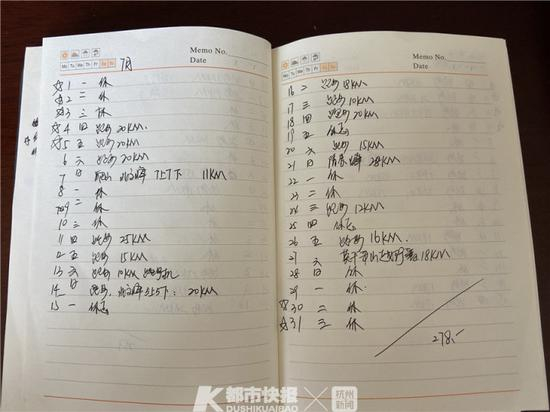 Memo No.
Mo Tu We Th Fr Sa Su
Date
7月
☆1 一 休
☆2 二 休
☆3 三 休
☆4 四 跑步 20KM.
☆5 五 跑步 20KM
6 六 跑步 20KM
7 日 爬山 北高峰 3上3下 11KM
8 一 休
9 二 休
10 三 休
11 四 跑步 25KM
12 五 跑步 15KM
13 六 跑步 10KM
14 日 跑步, 北高峰3上3下: 20KM
15 一 休
Memo No.
Mo Tu We Th Fr Sa Su
Date
16 二 跑步 18KM
17 三 跑步 10KM
18 四 跑步 20KM
19 五 休
20 六 跑步 15KM
21 日 28KM
22 一 休
23 二 休
24 三 跑步 12KM
25 四 休
26 五 跑步 16KM
27 六 莫干山越野赛 18KM
28 日 休
29 一 休
☆30 二 休
☆31 三 休
278.-
都市快报
DUSHIKUAIBAO
杭州
新闻